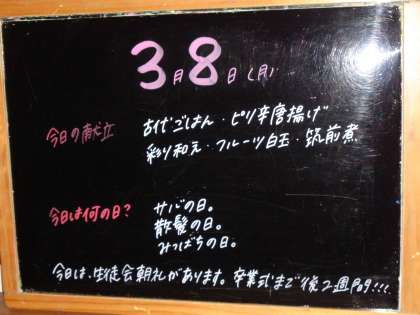 3月8日(月)
今日の献立
古代ごはん・ピリ辛唐揚げ
彩り和え・フルーツ白玉・筑前煮
今日は何の日？
サバの日。
散髪の日。
みつばちの日。
今日は、生徒会朝礼があります。卒業式まで後2週間!!!